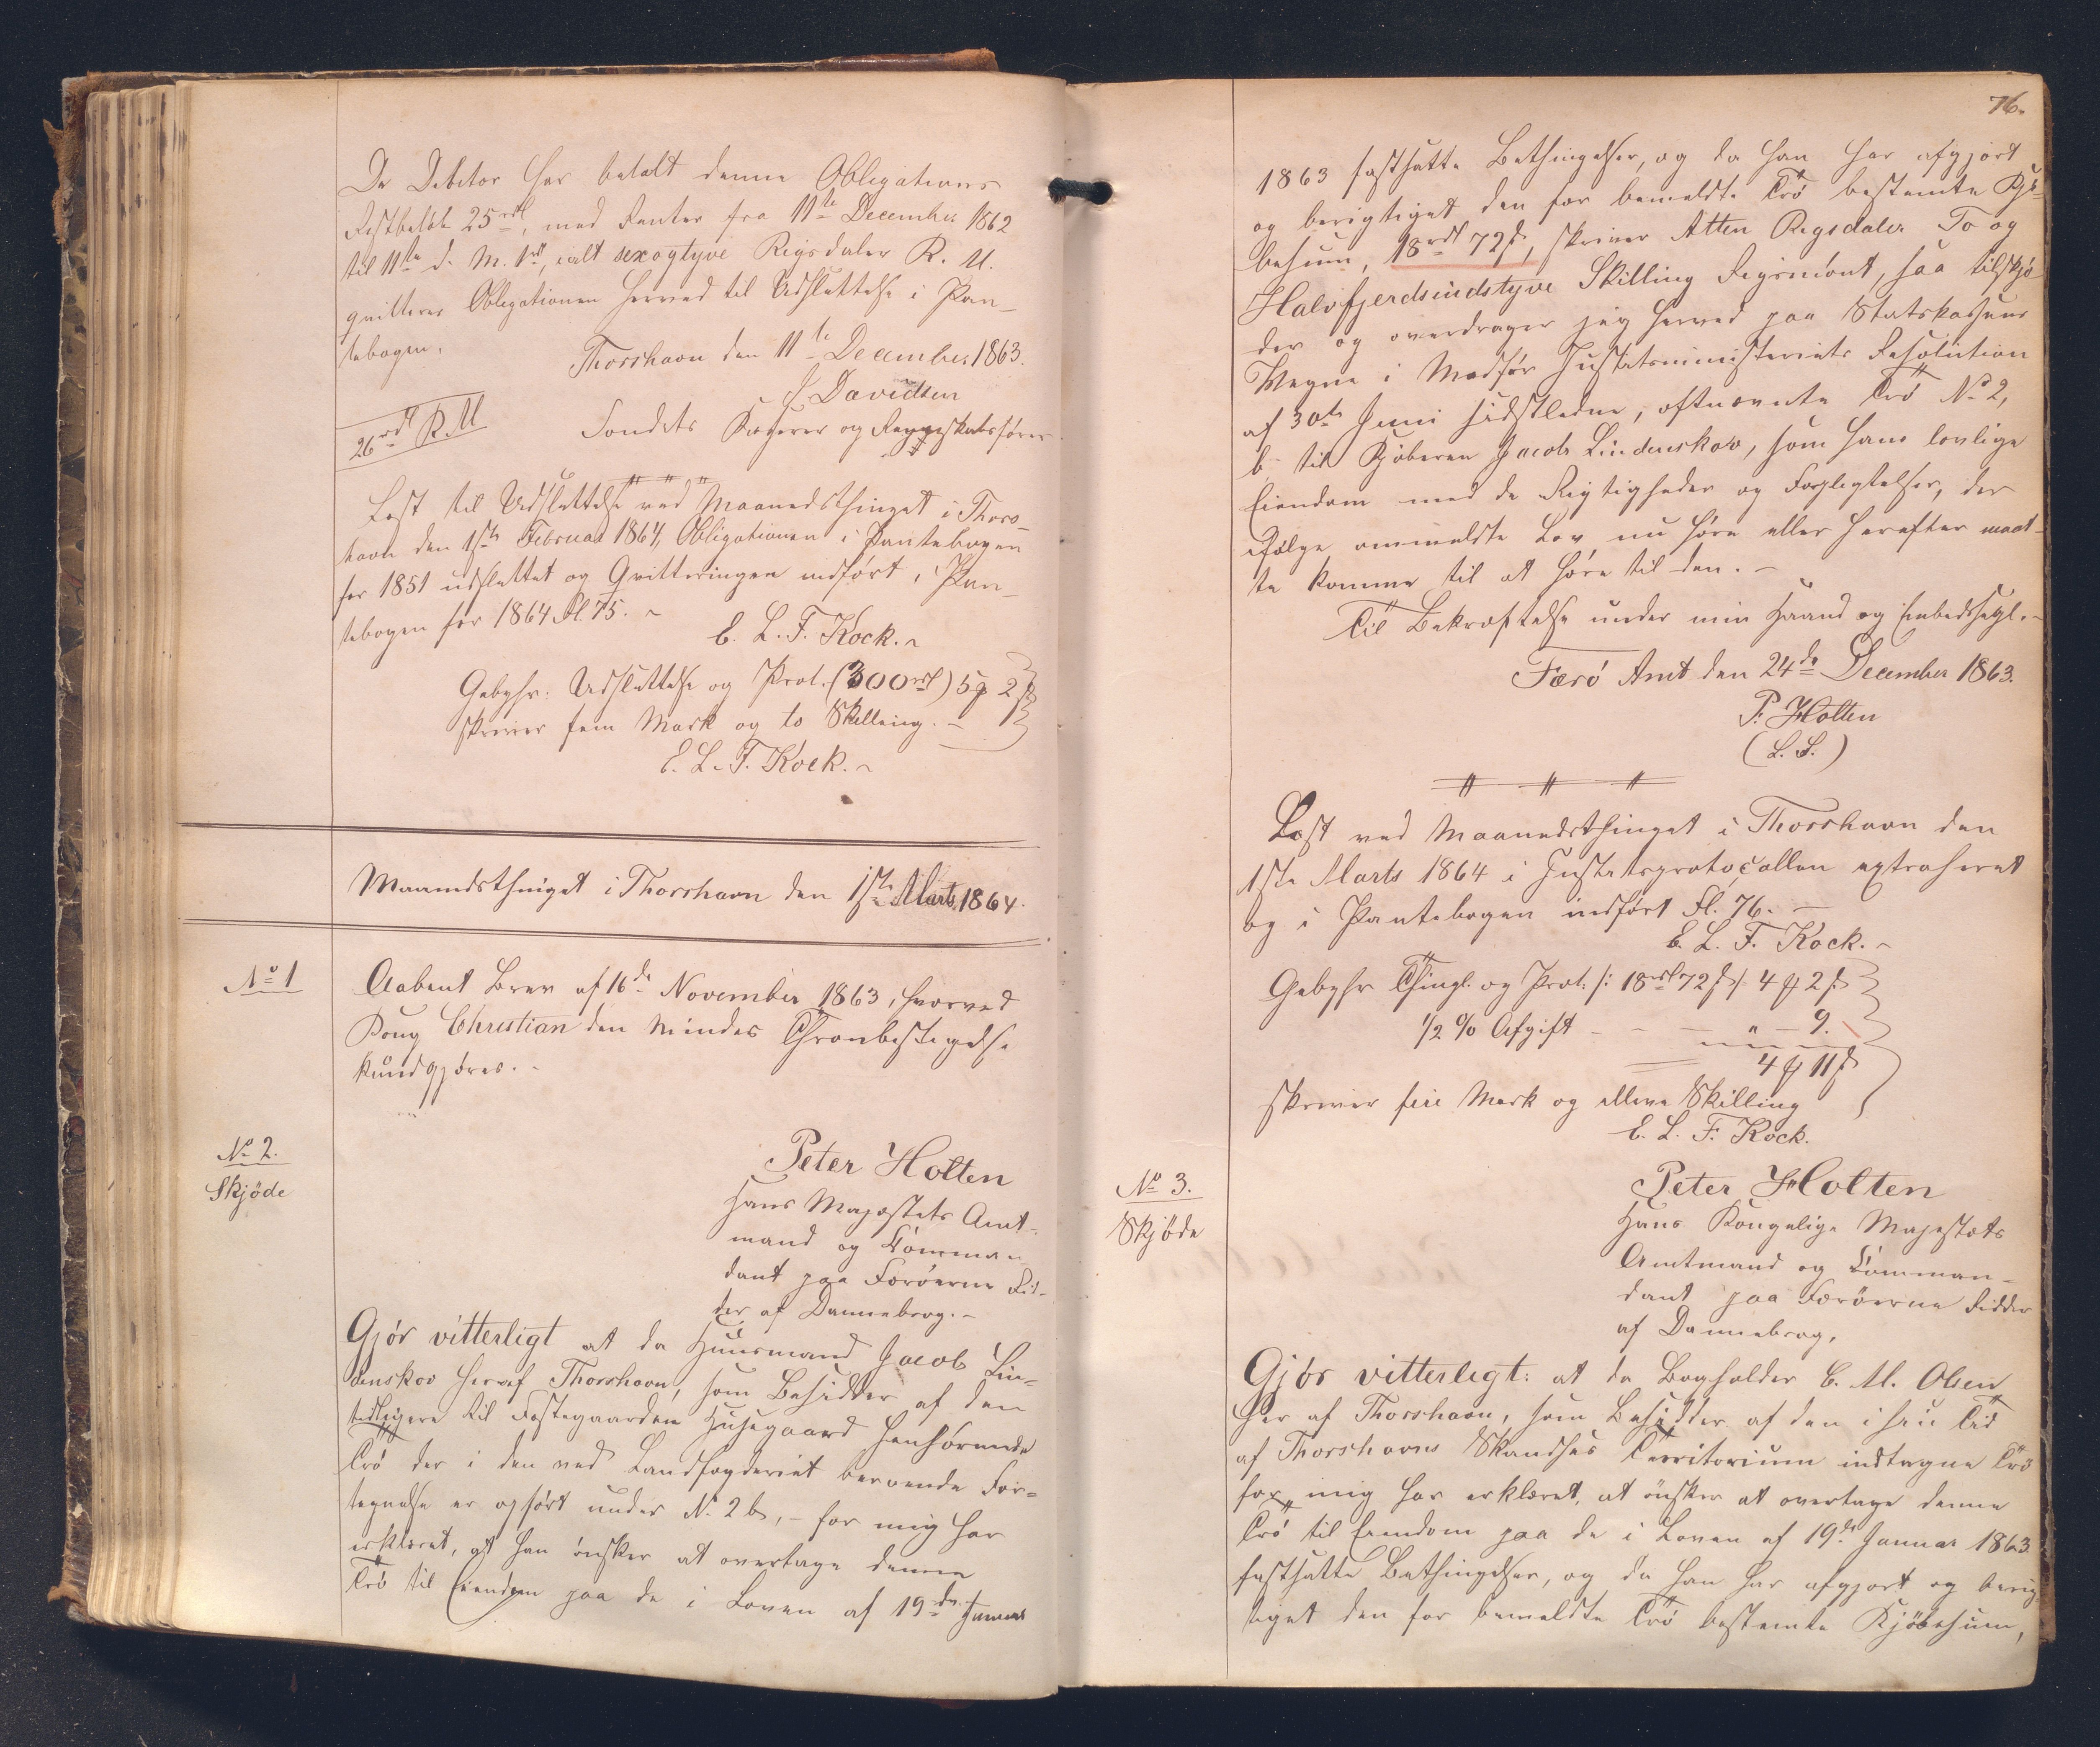 Da Debitor har betalt denne Obligations
Restbeløb 25 rdl, med Renter fra 11te December 1862
til 11te d. M. 1 rdl, ialt sexogtyve Rigsdaler R. M.
qvitteres Obligationen herved til Udslettelse i Pan-
tebogen.
Thorshavn den 11te December 1863.
J. Davidsen
26 rdl R. M
Fondets Kasserer og Regnskabsfører
Læst til Udslettelse ved Maanedsthinget i Thors-
havn den 1ste Februar 1864, Obligationen i Pantebogen
for 1851 udslettet og Qvitteringen indført i Pan-
tebogen for 1864 Fl. 75.
E. L. F. Kock.
Gebyhr: Udslettelse og Prot. (300 rdl) 5 ₰ 2 ß
skriver fem Mark og to Skilling. -
E. L. F. Kock.
Maanedsthinget i Thorshavn den 1ste Marts 1864.
No 1
Aabent Brev af 16de November 1863, hvorved
Kong Christian den Niendes Thronbestigelse
kundgjøres. -
No 2.
Skjöde
Peter Holten
Hans Majestæts Amt-
mand og Comman
dant paa Færöerne Rid-
der af Dannebrog. -
Gjör vitterligt at da Huusmand Jacob Lin-
denskov heraf Thorshavn, som Besidder af den
tidligere til Festegaarden Husegaard henhørende
Trö der i den ved Landfogderiet beroende For-
tegnelse er opført under No 2 b, - for mig har
erklæret, at han önsker at overtage denne
Trö til Eiendom paa de i Loven af 19de Januar
76.
1863 fastsatte Bethingelser, og da han har afgjort
og berigtiget den for bemeldte Trö bestemte Kjö-
besum, 18 rdl 72 ß, skriver Atten Rigsdaler To og
Halvfjerdsindstyve Skilling Rigsmönt, saa tilskjö-
der og overdrager jeg herved paa Statskassens
Vegne i Medför Justitsministeriets Resolution
af 30te Juni sidstleden, oftnævnte Trö No 2,
b til Kjöberen Jacob Lindenskov, som hans lovlige
Eiendom med de Rigtigheder og Forpligtelser, der
ifølge ommeldte Lov nu höre eller herefter maat-
te komme til at høre til den. -
Til Bekræftelse under min Haand og Embedssegl. -
Færö Amt den 24de December 1863.
P. Holten
(L. S.)
Læst ved Maanedsthinget i Thorshavn den
1ste Marts 1864 i Justitsprotocollen extraheret
og i Pantebogen indført Fl. 76. -
E. L. F. Kock.
Gebyhr Thingl. og Prot. /: 18 rdl 72 ß / 4 ₰ 2 ß
1/2 % Afgift - - - " - 9.
4 ₰ 11 ß
skriver fire Mark og elleve Skilling
E. L. F. Kock.
No 3.
Skjöde
Peter Holten
Hans Kongelige Majestæts
Amtmand og Comman-
dant paa Færöerne Ridder
af Dannebrog,
Gjör vitterligt: at da Bogholder C. M. Olsen
her af Thorshavn, som Besidder af den i sin Tid
af Thorshavns Skandses Territorium indtagne Trö
for mig har erklæret, at önsker at overtage denne
Trö til Eiendom paa de i Loven af 19de Januar 1863
fastsatte Bethingelser, og da han har afgjort og berig-
tiget den for bemeldte Trö bestemte Kjöbesum,